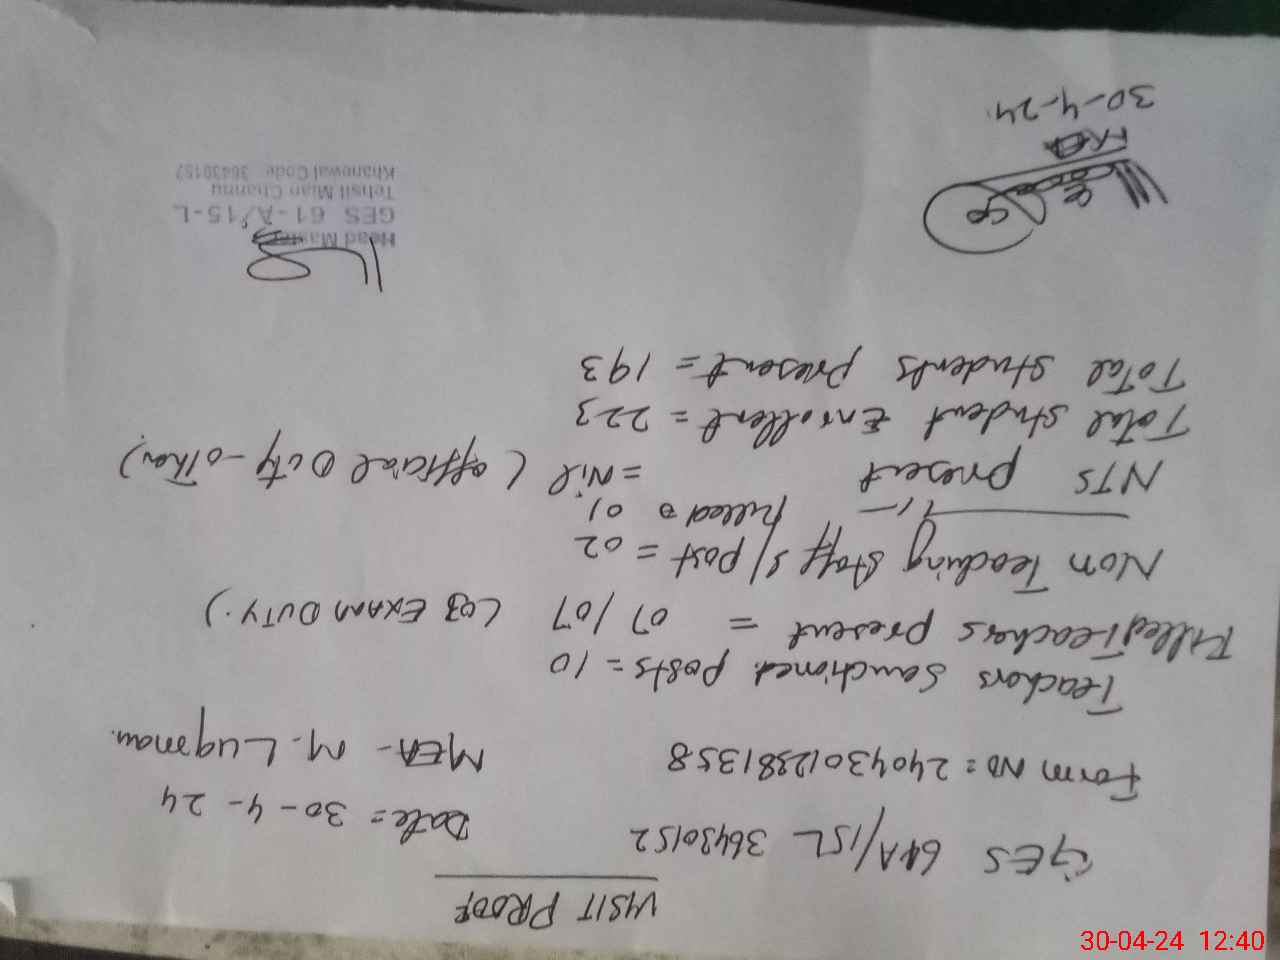 VISIT PROOF
GES 61A/15L 36430152 Date = 30-4-24
Form No = 24043012381358 MEA- M. Luqman.
Teachers Sanctioned posts = 10
Filled Teachers present = 07/07 (03 EXAM DUTY.)
Non Teaching Staff S/post = 02
filled = 01
NTS present = Nil (official Duty-other)
Total student Enrollent = 223
Total students present = 193
Head Master
GES 61-A/15-L
Tehsil Mian Channu
Khanewal Code: 36430152
MEA
30-4-24
30-04-24 12:40